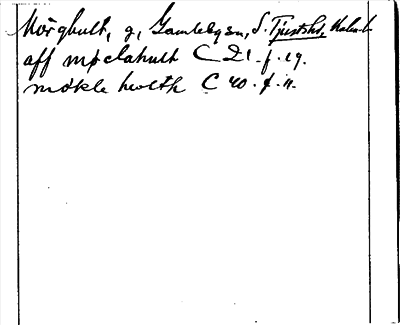 Mörghult, g, Gamleby sn, S. Tjusts hd, Kalm. l.
aff möclahult C 21. f. 19.
mökle hwlth C 40. f. 11.